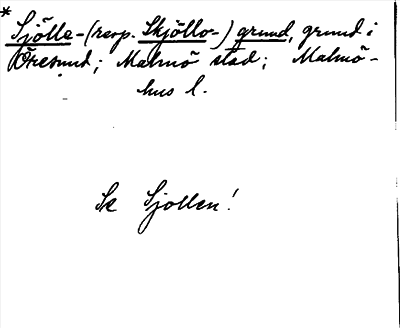 * Sjölle- (resp. Skjöllo-) grund, grund i
Öresund; Malmö stad; Malmö-
hus l.
Se Sjollen!